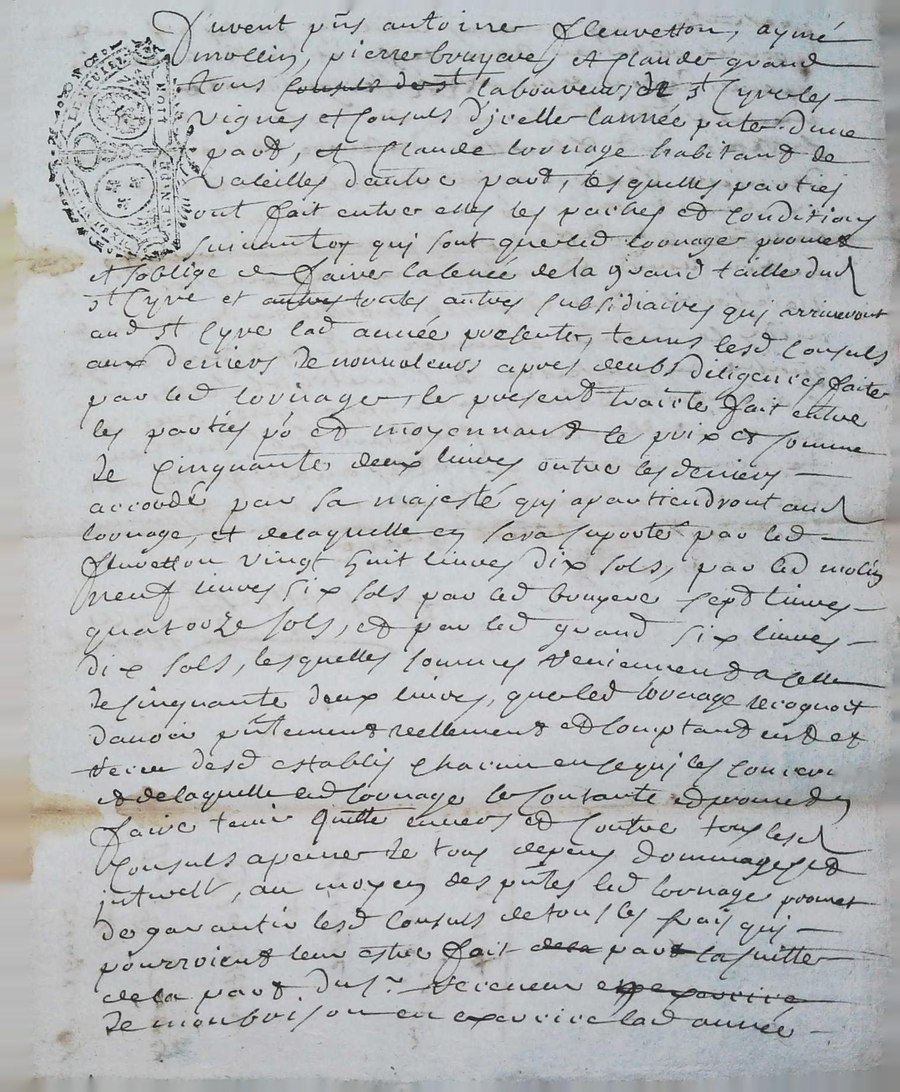 furent pñs antoine fleuretton, aymé
mollin, pierre bouyere, et claude grand
tous consuls de st laboureurs de st Cyre les
vignes et Consuls d'jcelle lannée pnte dune
part, et Claude lornage habitant de
Valeilles dautre part, lesquelles parties
ont fait entre elles les paches et conditions
suivantes qui sont que led lornage promet
et soblige de faire la levée de la grand taille dud
st Cyre et autres toutes autres subsidiaires qui arriveront
aud st Cyre lad année presente, tenus lesd Consuls
aux deniers de nonvaleurs apres deubs diligences faite
par led lornage, le present traicté fait entre
les parties po et moyennant le prix et somme
de cinquante deux livres outre les deniers
accordé par sa majesté qui apartiendront aud
lornage, et de laquelle en sera suporté par led
fleuretton vingt huit livres dix sols, par led molin
neuf livres six sols par led bouyere sept livres
quatorze sols, et par led grand six livres
dix sols, lesquelles sommes reviennent a celle
de cinquante deux livres, que led lornage recognoit
davoir pñtement reellement et comptant eut et
receu desd establis chacun en ce qui les concerne
et de laquelle led lornage se contante et promet
faire tenir quitte envers et contre tous lesd
Consuls a peine de tous depens dommages et
jntrest, au moyen des pñtes led lornage promet
de garantir lesd Consuls de tous les frais qui
pourroient leur estre fait de la part la suitte
de la part du sr receveur en exercice
de monbrison en exercice lad année